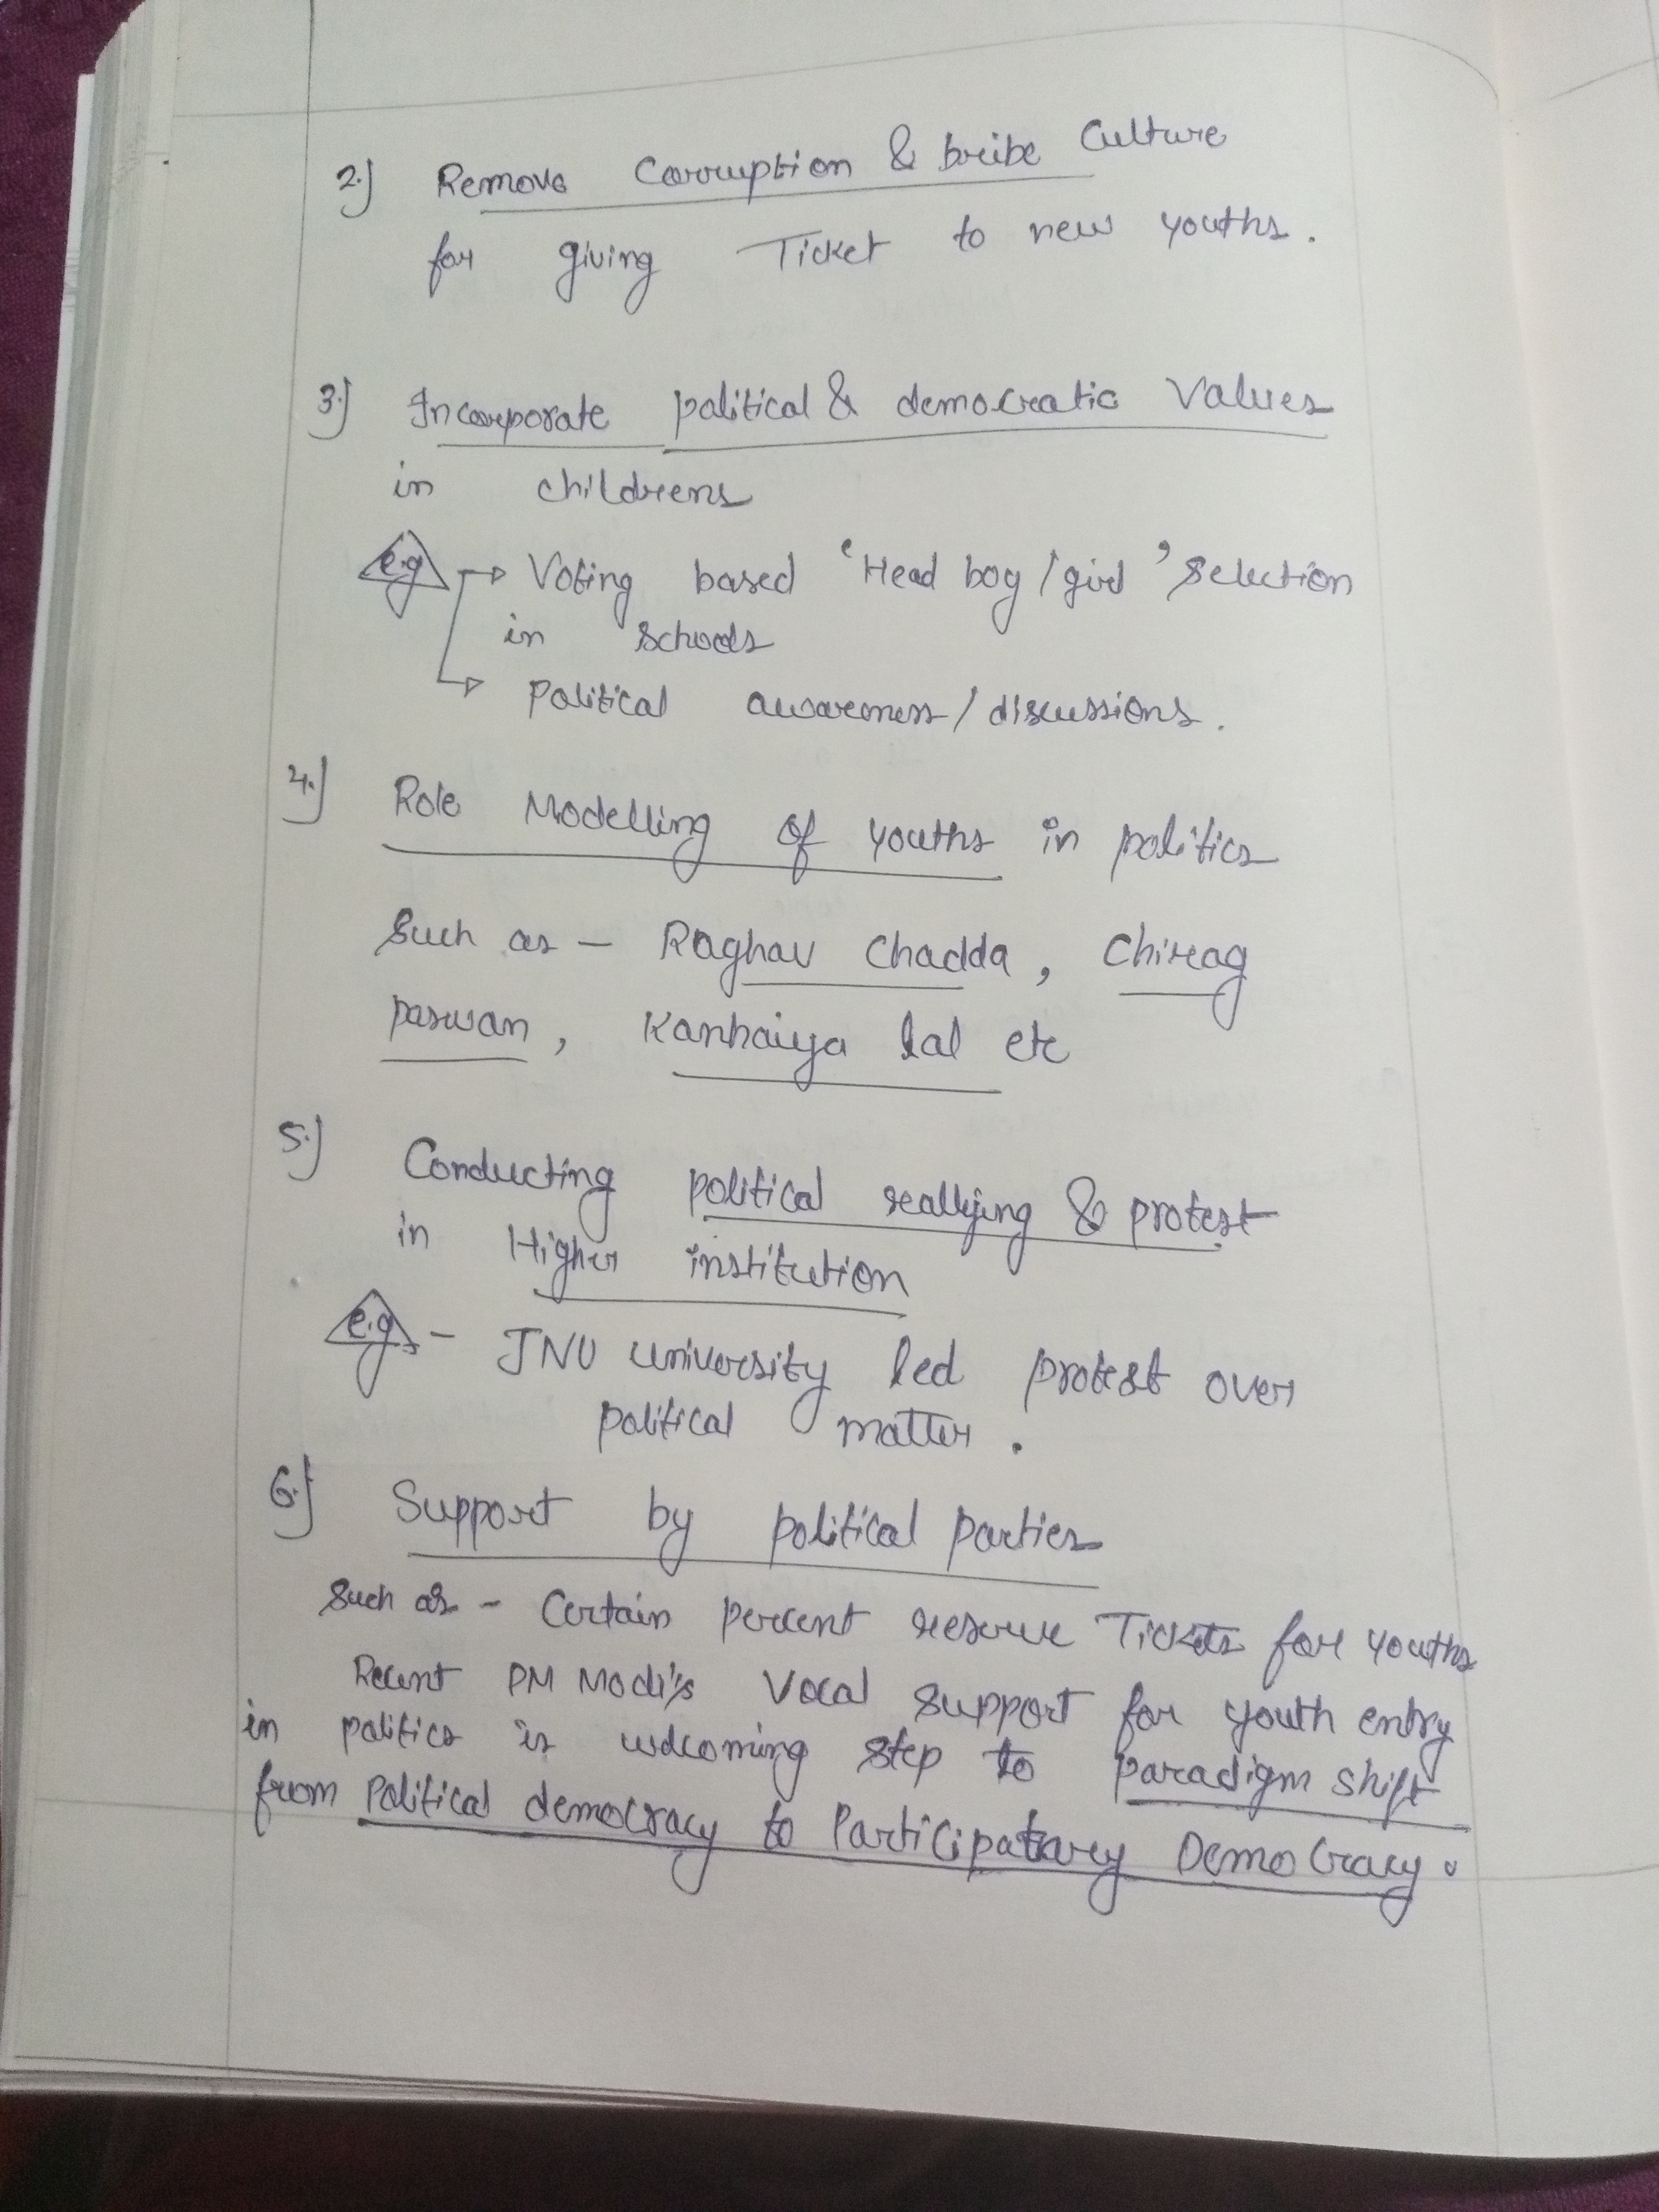 2.) Remove Corruption & bribe Culture
for giving Ticket to new youths.
3.) Incorporate political & democratic Values
in childrens
e.g → Voting based 'Head boy/girl' Selection
in schools
→ Political awareness/discussions.
4.) Role Modelling of youths in politics
Such as - Raghav Chadda, Chirag
paswan, Kanhaiya lal etc
5.) Conducting political reallying & protest
in Higher institution
e.g - JNU university led protest over
political matter.
6.) Support by political parties
Such as - Certain percent reserve Tickets for youths
Recent PM Modi's Vocal support for youth entry
in politics is welcoming step to paradigm shift
from Political democracy to Participatary Democracy.